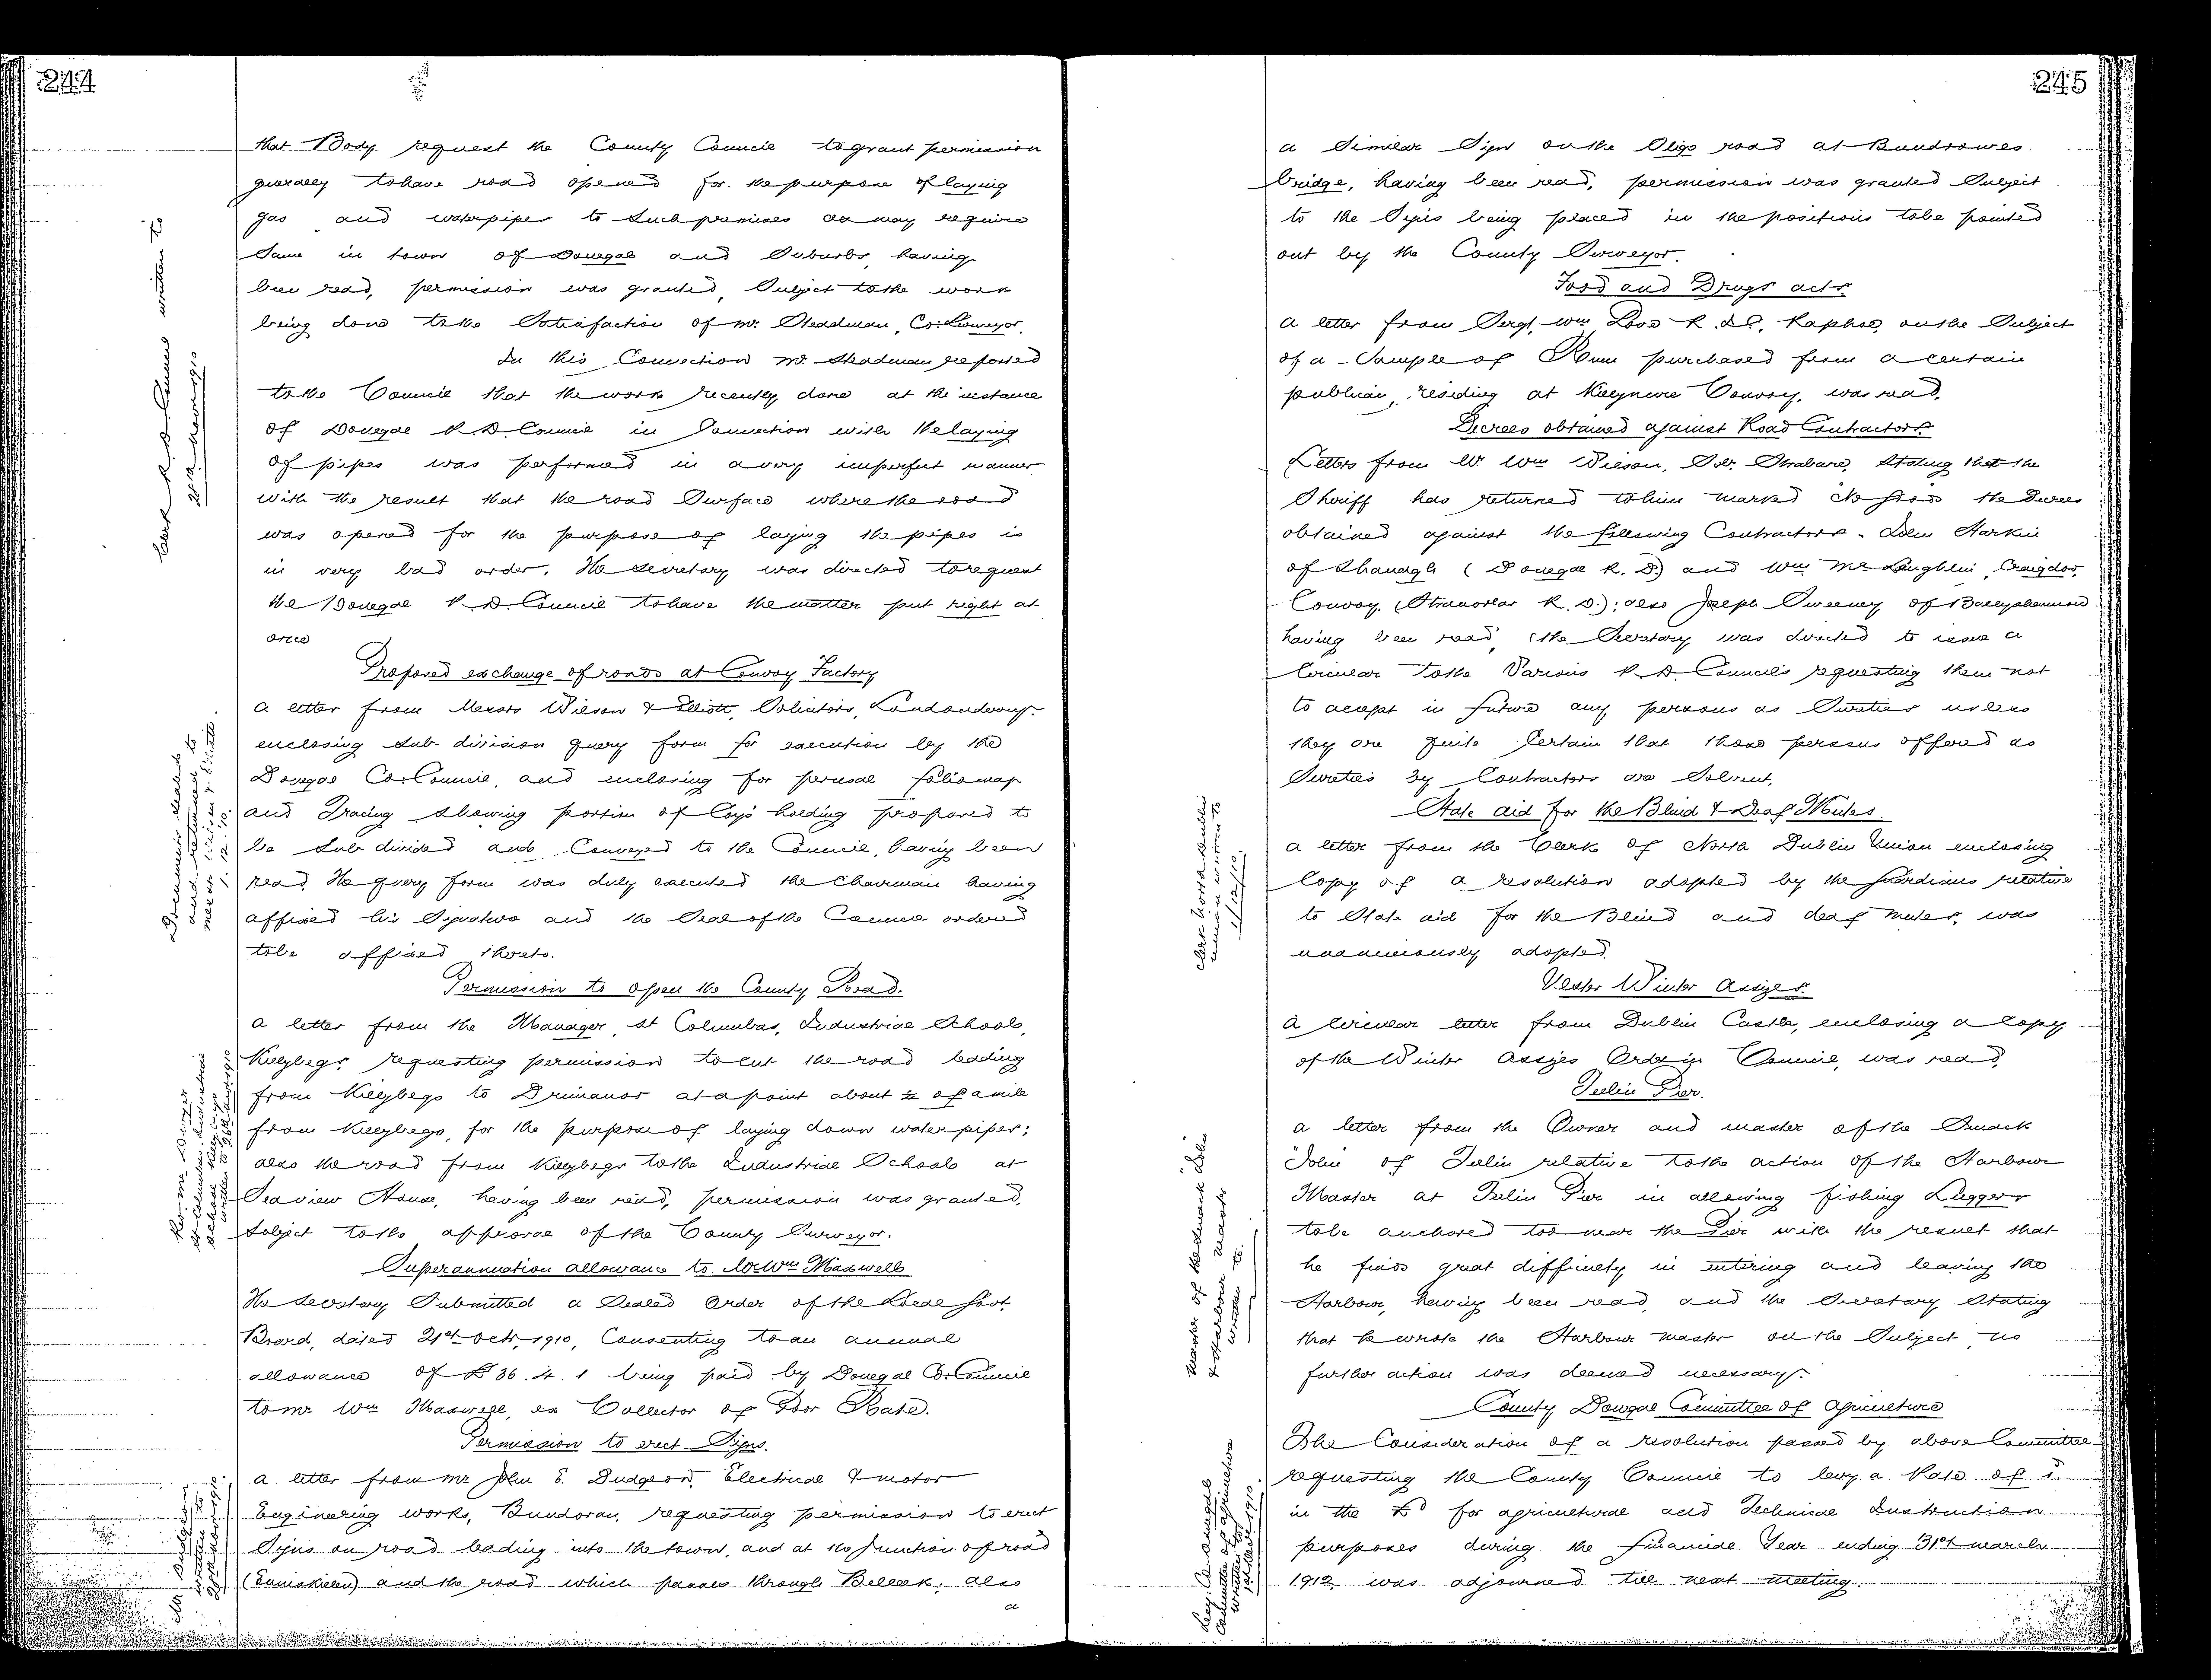 244
that Body request the County Council to grant permission
generally to have road opened for the purpose of laying
gas and waterpipes to such premises as may require
same in town of Donegal and Suburbs, having
been read, permission was granted, Subject to the work
being done to the Satisfaction of Mr. Steadman, Co: Surveyor.
In this Connection Mr. Steadman reported
to the Council that the work recently done at the instance
of Donegal R.D. Council in Connection with the laying
of pipes was performed in a very imperfect manner
with the result that the road Surface where the road
was opened for the purpose of laying the pipes is
in very bad order. The Secretary was directed to request
the Donegal R.D. Council to have the matter put right at
once
Proposed exchange of roads at Convoy Factory
A letter from Messrs Wilson & Elliott, Solicitors, Londonderry
enclosing Sub-division query form for execution by the
Donegal Co: Council, and enclosing for perusal folio map
and Tracing Showing portion of Coys holding proposed to
be Sub-divided and Conveyed to the Council, having been
read, the query form was duly executed the Chairman having
affixed his Signature and the Seal of the Council ordered
to be affixed thereto.
Permission to open the County Road.
A letter from the Manager, St Columbas, Industrial Schools,
Killybegs requesting permission to cut the road leading
from Killybegs to Drimanoo at a point about ½ of a mile
from Killybegs, for the purpose of laying down water pipes;
also the road from Killybegs to the Industrial Schools at
Seaview House, having been read, permission was granted,
Subject to the approval of the County Surveyor.
Superannuation allowance to Mr Wm Maxwell
The Secretary Submitted a Sealed Order of the Local Govt
Board, dated 21st Octr, 1910, Consenting to an annual
allowance of £36.4.1 being paid by Donegal Co: Council
to Mr Wm Maxwell, ex Collector of Poor Rate.
Permission to erect Signs.
A letter from Mr John E. Dudgeon, Electrical & Motor
Engineering works, Bundoran, requesting permission to erect
Signs on road leading into the town, and at the Junction of road
(Enniskillen) and the road which passes through Belleek; also
a
Clerk R.D. Council written to
Novr 1910
Documents sealed
and returned to
Messrs Wilson & Elliott
Rev. Mr
St Columbas Industrial
School Killybegs
written to
245
a Similar Sign on the Sligo road at Bundrowes
bridge, having been read, permission was granted Subject
to the Signs being placed in the positions to be pointed
out by the County Surveyor.
Food and Drugs acts
A letter from Sergt. Wm Love R.I.C. Raphoe, on the Subject
of a Sample of Rum purchased from a certain
publican, residing at Killynure Convoy, was read.
Decrees obtained against Road Contractors
Letters from Mr Wm Wilson, Solr. Strabane, Stating that the
Sheriff has returned to him marked No Goods the Decrees
obtained against the following Contractors - John Harkin
of (Donegal R.D.) and Wm McLaughlin, Craigdoo,
Convoy, (Stranorlar R.D.); also Joseph Sweeney of Ballyshannon
having been read, the Secretary was directed to issue a
Circular to the Various R.D. Councils requesting them not
to accept in future any persons as Sureties unless
they are quite Certain that those persons offered as
Sureties by Contractors are Solvent.
State aid for the Blind & Deaf Mutes.
A letter from the Clerk of North Dublin Union enclosing
Copy of a resolution adopted by the Guardians relative
to State aid for the Blind and deaf Mutes, was
unanimously adopted.
Ulster Winter Assizes.
A Circular letter from Dublin Castle, enclosing a Copy
of the Winter Assizes Order in Council, was read.
Teelin Pier.
A letter from the Owner and master of the Smack
"John" of Teelin relative to the action of the Harbour
Master at Teelin Pier in allowing fishing Luggers
to be anchored too near the Pier with the result that
he finds great difficulty in entering and leaving the
Harbour, having been read, and the Secretary Stating
that he wrote the Harbour Master on the Subject, no
further action was deemed necessary.
County Donegal Committee of Agriculture
The Consideration of a resolution passed by above Committee
requesting the County Council to levy a Rate of 1d
in the £ for agricultural and Technical Instruction
purposes during the Financial Year ending 31st March
1912, was adjourned till next meeting.
Clerk North Dublin
Union written to
1/12/10.
Master of the Smack "John"
& Harbour Master
written to.
Secy. Co. Donegal
Committee of Agriculture
written to